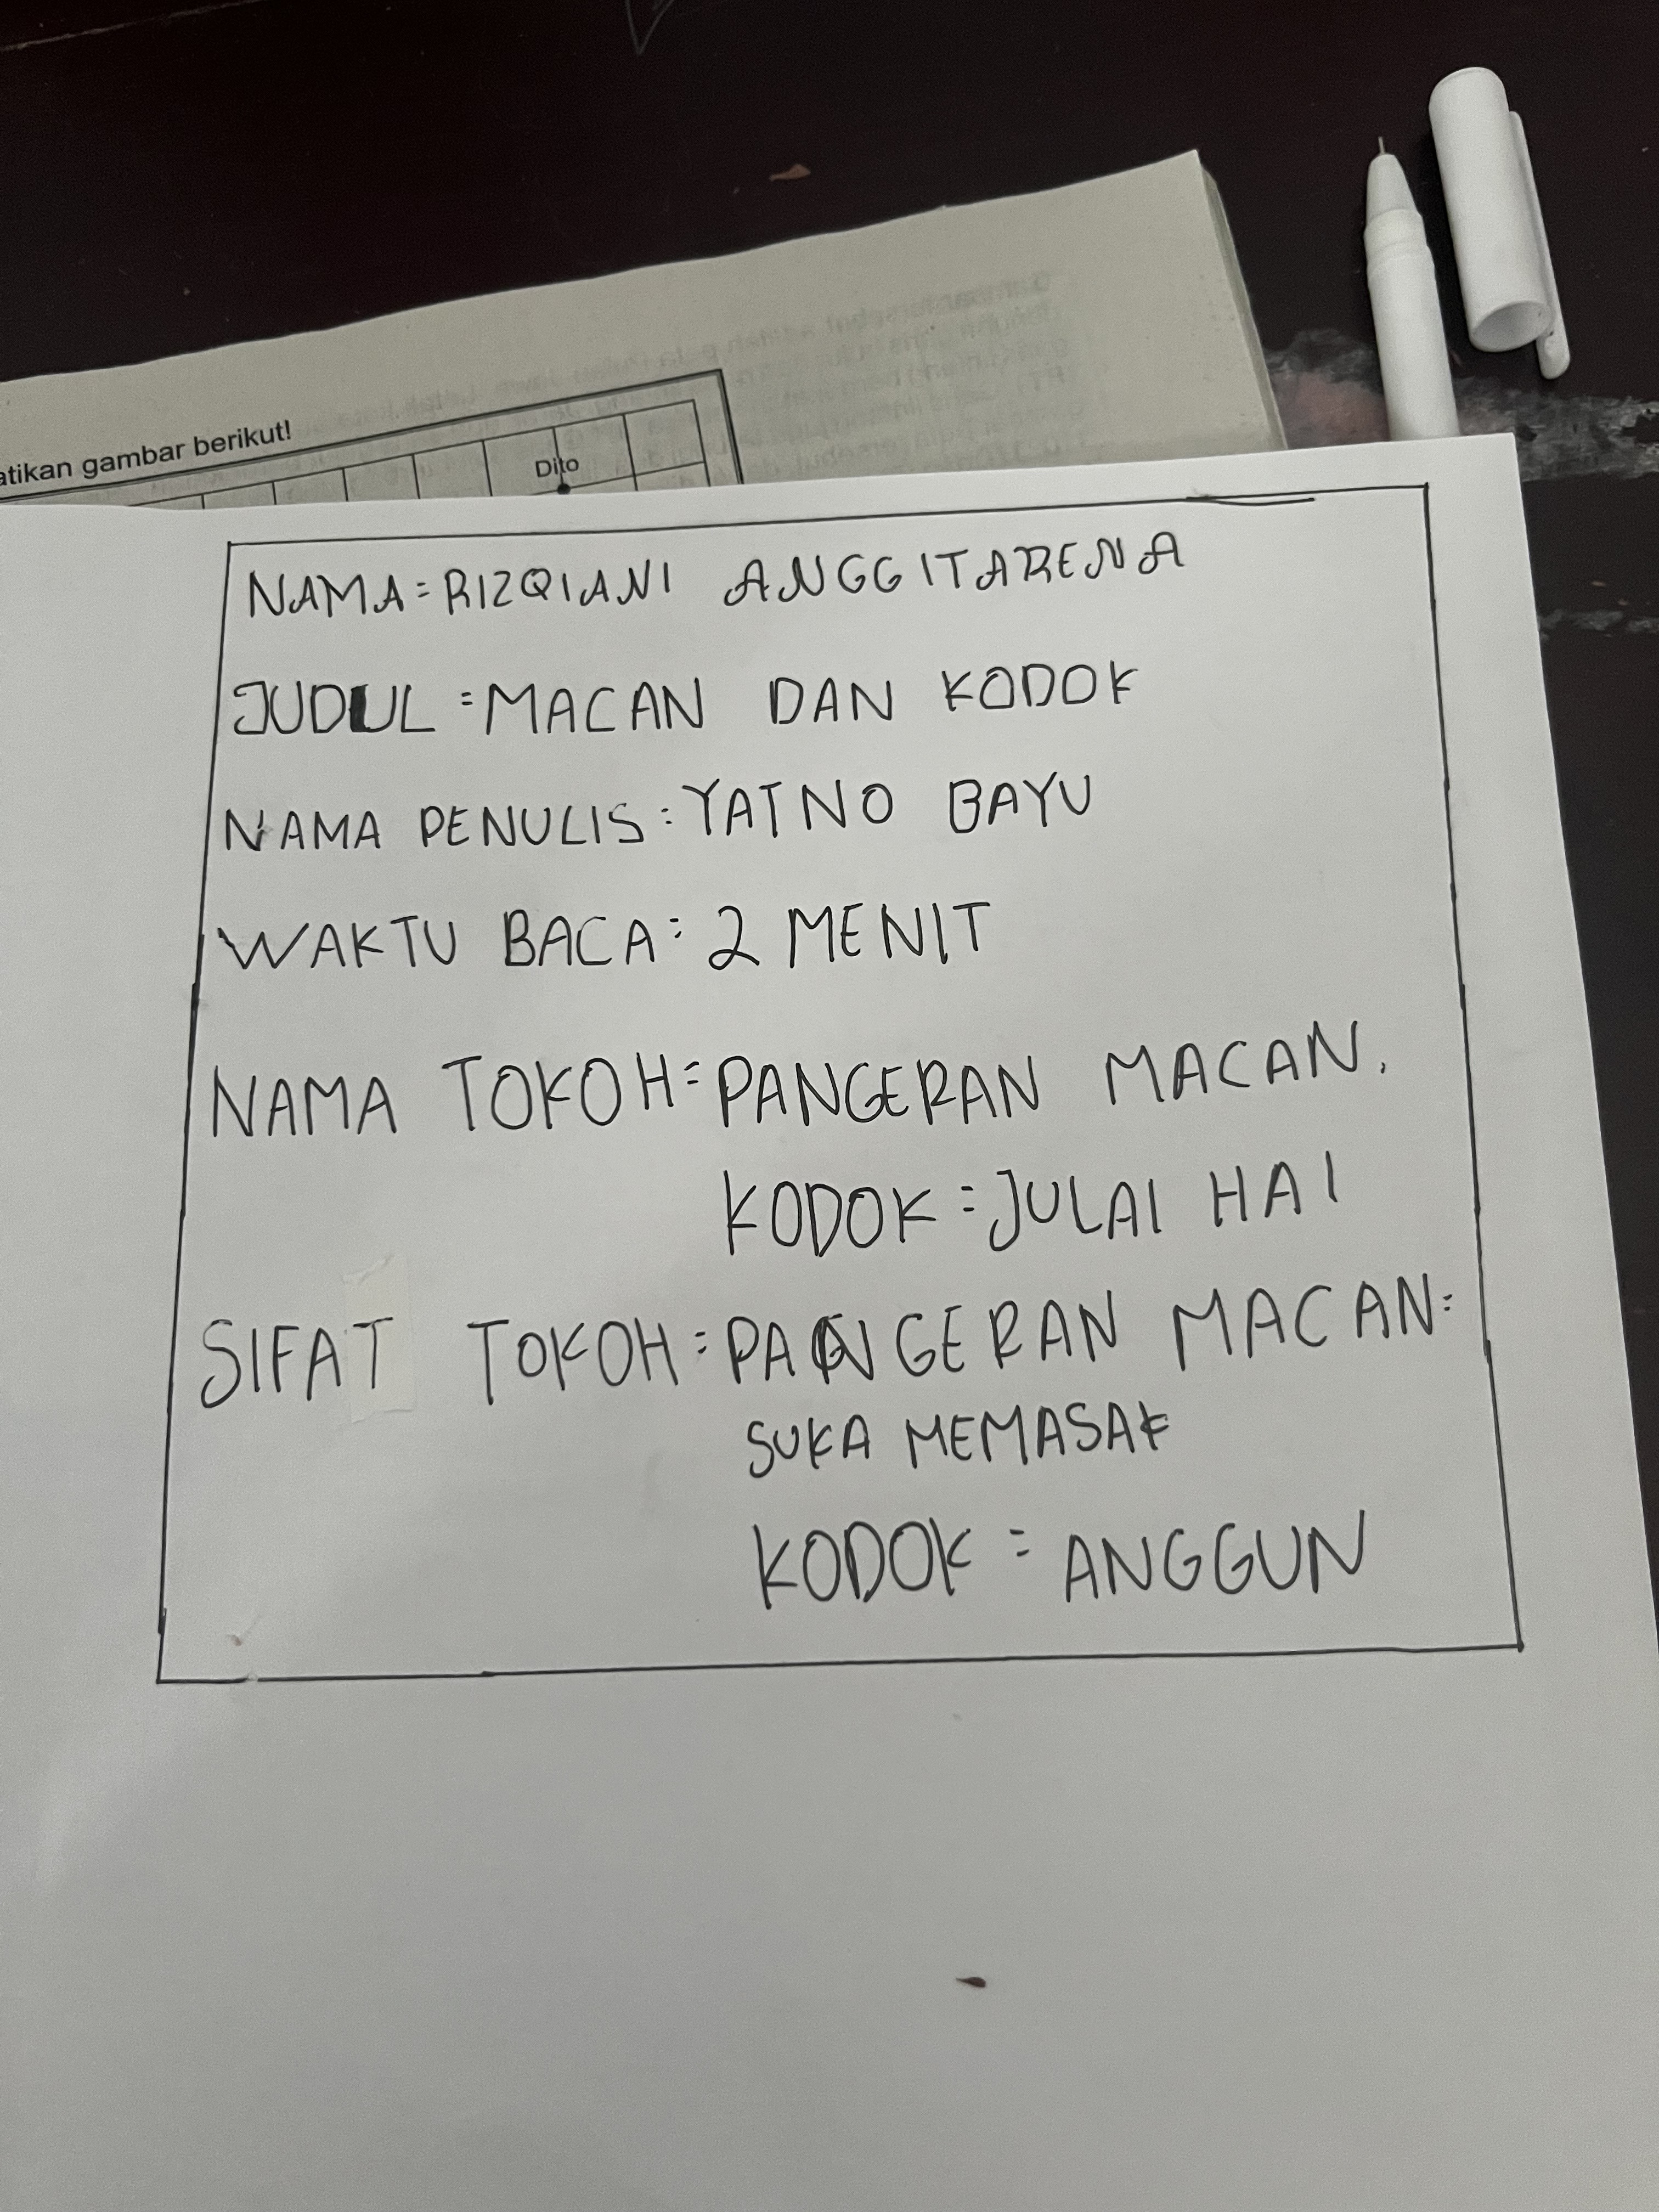 atikan gambar berikut!
Dito
NAMA = RIZQIANI ANGGITARENA
JUDUL = MACAN DAN KODOK
NAMA PENULIS : YATNO BAYU
WAKTU BACA : 2 MENIT
NAMA TOKOH = PANGERAN MACAN.
KODOK = JULAI HAI
SIFAT TOKOH = PANGERAN MACAN =
SUKA MEMASAK
KODOK = ANGGUN